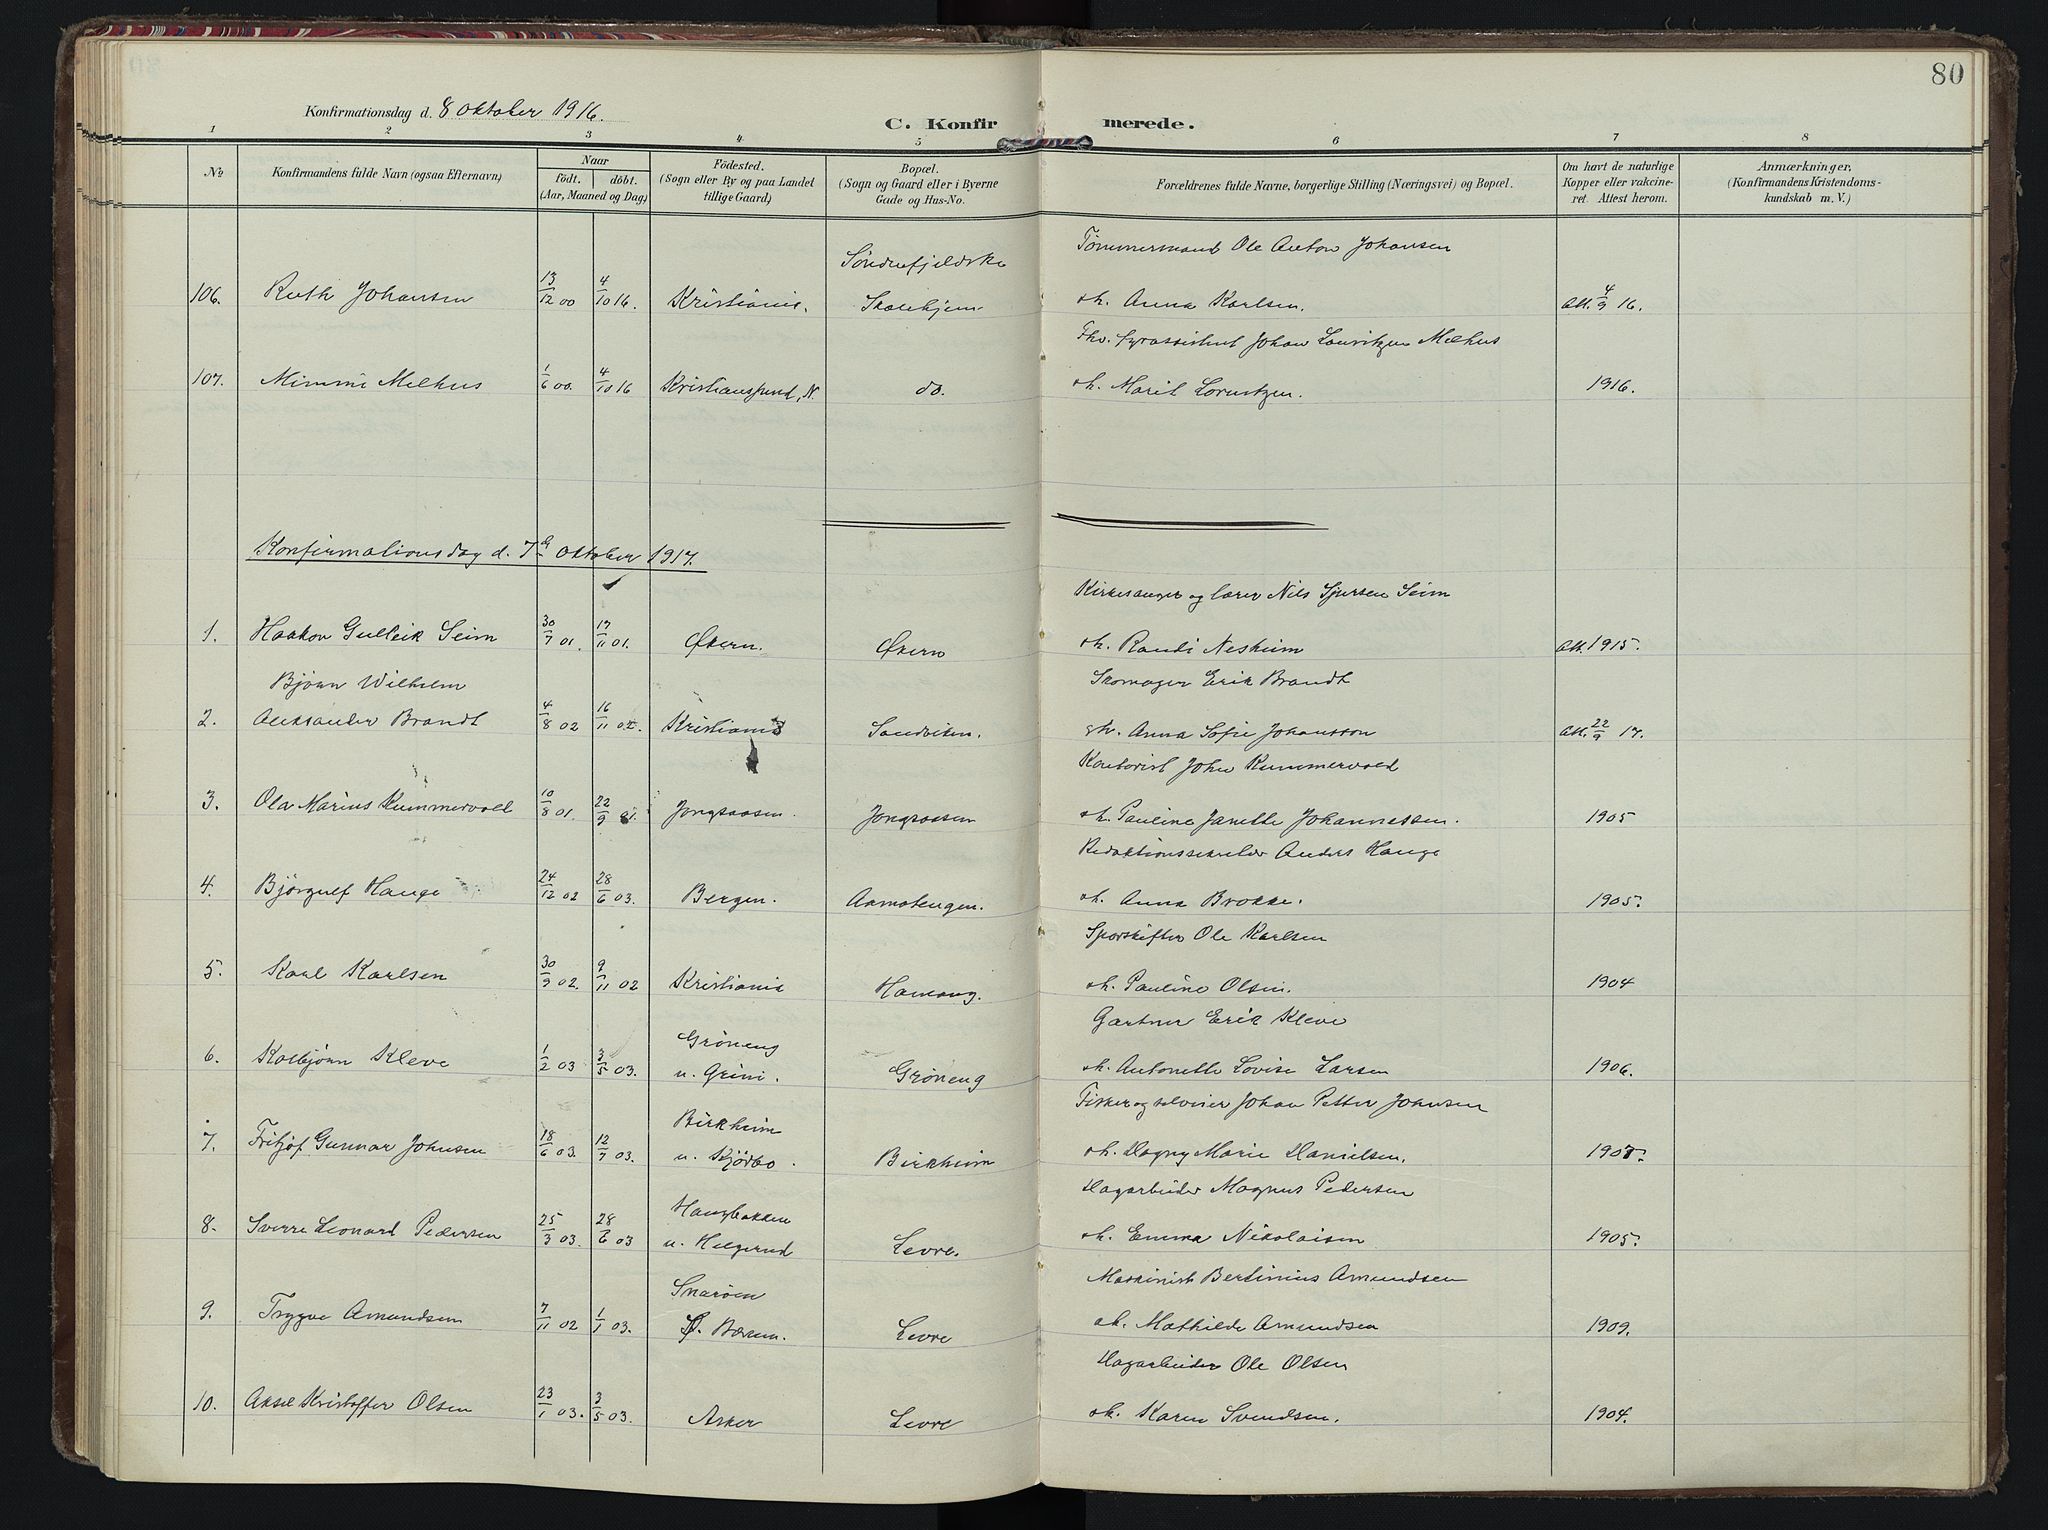 80
Konfirmationsdag d. 8 oktober 1916.
C. Konfirmerede.
1 2 3 4 5 6 7 8
No
Konfirmandens fulde Navn (ogsaa Efternavn)
Naar
født. døbt.
(Aar, Maaned og Dag)
Födested.
(Sogn eller By og paa Landet
tillige Gaard)
Bopæl.
(Sogn og Gaard eller i Byerne
Gade og Hus-No.
Forældrenes fulde Navne, borgerlige Stilling (Næringsvei) og Bopæl.
Om havt de naturlige
Kopper eller vakcine-
ret. Attest herom.
Anmærkninger,
(Konfirmandens Kristendoms-
kundskab m. V.)
Søndenfjeldske Tømmermand Ole Anton Johansen
106. Ruth Johansen 13/12 00 4/10 16. Kristiania. Skolehjem oh. Anna Karlsen. Att. 4/9 16.
Fhv. fyrassistent Johan Lauritzen Melhus
107. Mimmi Melhus 1/6 00. 4/10 16 Kristianssund, N. do. oh. Marit Lorentzen. 1916.
Konfirmationsdag d. 7de oktober 1917.
Kirkesanger og lærer Nils Sjursen Seim
1. Haakon Gulleik Seim 30/7 01. 17/11 01. Økern. Økern oh. Randi Nesheim Att. 1915.
Bjørn Wilhelm Skomager Erik Brandt
2. Aleksander Brandt 4/8 02 16/11 02. Kristiania Sandviken. oh. Anna Sofie Johansson Att. 22/9 17.
Kontorist John Kummervold
3. Ola Marius Kummervold 10/8 01. 22/9 01. Jongsaasen. Jongsaasen oh. Pauline Janette Johannessen. 1905
Redaktionssekretær Anders Hauge
4. Bjørgulf Hauge 24/12 02 28/6 03. Bergen. Aamotengen. oh. Anna Brokke. 1905.
Sporskifter Ole Karlsen
5. Karl Karlsen 30/9 02. 9/11 02 Kristiania Hamang. oh. Pauline Olsen. 1904
Grøneng Gartner Erik Kleve
6. Kolbjørn Kleve 1/2 03 3/5 03. u. Grini. Grøneng oh. Antonette Lovise Larsen 1906.
Birkheim Fisker og selveier Johan Petter Johnsen
7. Fritjof Gunnar Johnsen 18/6 03. 12/7 03. u. Kjørbo. Birkheim oh. Dagny Marie Danielsen. 1907.
Haugbakken Dagarbeider Magnus Pedersen
8. Sverre Leonard Pedersen 25/3 03. 28/6 03 u. Helgerud Levre. oh. Emma Nikolaisen 1905.
Snarøen Maskinist Bertinius Amundsen
9. Trygve Amundsen 7/11 02 1/1 03. Ø. Bærum. Levre oh. Mathilde Amundsen 1909.
Dagarbeider Ole Olsen
10. Aksel Kristoffer Olsen 23/1 03. 3/5 03. Asker Levre oh. Karen Svendsen. 1904.